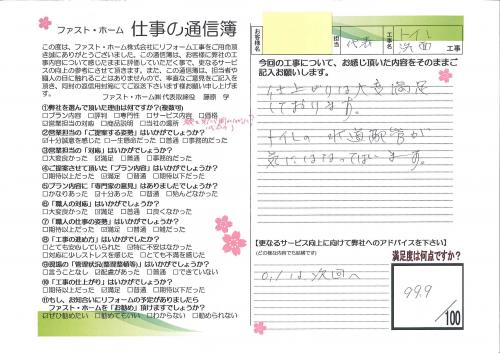 ファスト・ホーム 仕事の通信簿
この度は、ファスト・ホーム株式会社にリフォーム工事をご用命頂き
誠にありがとうございました。この通信簿は、お客様に弊社の工
事内容について感じたままに評価していただく事で、更なるサービ
スの向上の参考にさせて頂きます。また、この通信簿は、担当者や
職人の目に触れることはありませんので、率直なご意見をご記入を
頂き、同封の返信用封筒にてご返送下さいます様お願い申し上げます。
ファスト・ホーム㈱代表取締役 藤原 学
①弊社を選んで頂いた理由は何ですか?(複数可)
□プラン内容 □評判 □専門性 □サービス内容 □価格
□営業担当の対応 □商品説明 □当社の場所
②営業担当の「ご提案する姿勢」はいかがでしょうか?
☑十分誠意を感じた □一生懸命だった □普通 □事務的だった
③営業担当の「対応」はいかがでしょうか?
□大変良かった ☑満足 □普通 □事務的だった
④ご提案させて頂いた「プラン内容」はいかがでしょうか?
□期待以上だった ☑満足 □普通 □期待以下だった
⑤プラン内容に「専門家の意見」はありましたでしょうか?
□かなりあった ☑十分あった □普通 □殆んどなかった
⑥「職人の対応」はいかがでしょうか?
□大変良かった ☑満足 □普通 □良くなかった
⑦「職人の仕事の姿勢」はいかがでしょうか?
□期待以上だった ☑満足 □普通 □雑だった
⑧「工事の進め方」はいかがでしたか?
□とても安心していられた ☑特に不安はなかった
□対応に少しストレスを感じた □とても不満を感じた
⑨現場の「管理状況(整理整頓等)」はいかがでしょうか?
□言うことなし ☑配慮があった □普通 □できていない
⑩「工事の仕上がり」はいかがでしょうか?
□期待以上だった ☑満足 □普通 □期待以下だった
⑪もし、お知合いにリフォームの予定がありましたら
ファスト・ホームを「お勧め」頂けますでしょうか?
☑ぜひ勧めたい □勧めてもいい □わからない □勧められない
お客様名
担当
代表
工事名
トイレ
洗面
工事
今回の工事について、お感じ頂いた内容をそのままご
記入お願いします。
仕上がりは大変満足
しております。
トイレの水道配管が
気にはなってはいます。
【更なるサービス向上に向けて弊社へのアドバイスを下さい】
(どの様な内容でも結構です)
0.1は次回へ
満足度は何点ですか?
99.9
/100